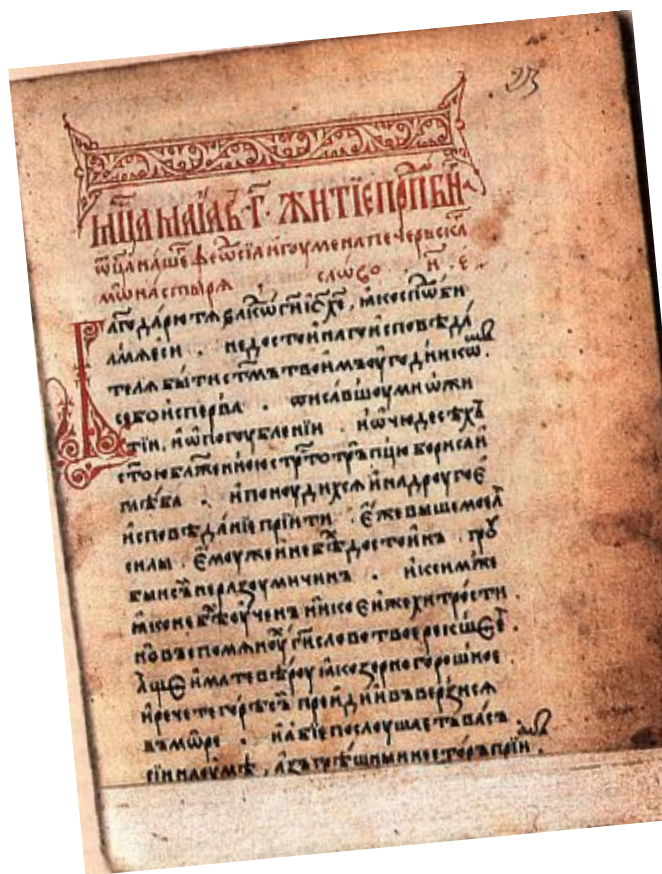 мц҃а маїа въ г҃· житїе прп҃бн
ѡц҃а наше ѳеѡсїа игоумена печерьска
мѡнастырѧ , слѡво
лагодарю тѧ влⷣко ги҃ іс҃ хе҃, ꙗко спⷣоби
лъ мѧ еси · недостойнаго исповѣда
телѧ быти ст҃мъ твоимъ оугодникѡ
се бо исперва · писавшоу ми ѡ жи
тїи, и ѡ погоублении · и ѡ чюдесѣхъ
ст҃ою блаженною стрⷭ҇тотръпцю бориса и
глѣба · и поноудихсѧ и на дроугое
исповѣданїе прїити · еже выше моеѧ
силы · емоуже и не бѣ достоинъ · гроу
бъ и неразоумиченъ · к симже
ꙗко не бѣ оученъ никоеиже хитрости ·
но въспомѧноу ги҃ слово твое рекшее ·
аще имате вѣроу ꙗко зерно горошное
и речете горѣ сей преиди и въверзисѧ
въ мѡре · и абїе послоушаеть васъ
сїи на оумѣ , азъ грѣшныи несторъ прїи